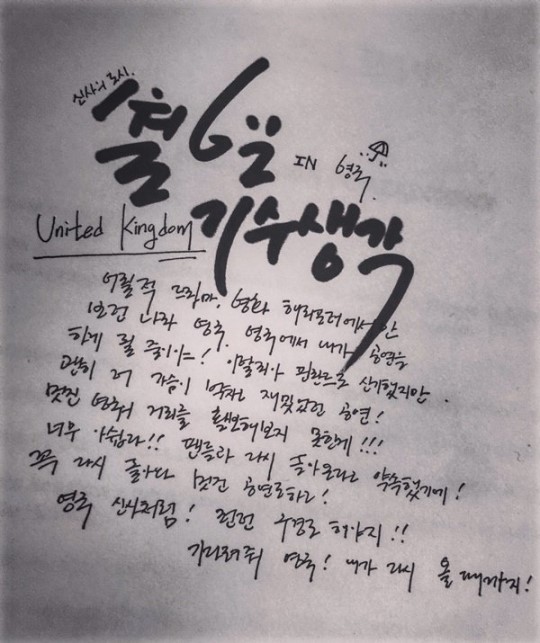 신사의 도시.
1월 6일 IN 영국.
기수생각
United Kingdom
어릴적 드라마. 영화 해리포터에서 만
보던 나라 영국. 영국에서 내가 공연을
하게 될 줄이야! 이탈리아 핀란드도 신기했지만.
괜히 더 가슴이 벅차고 재밌었던 공연!
멋진 영국의 거리를 활보해보지 못한게!!!
너무 아쉽다!! 팬들과 다시 돌아온다고 약속했기에!
꼭 다시 돌아다 멋진 공연로하리!
영국 신사처럼! 런던 구경도 해야지!!
기다려줘 영국! 내가 다시 올때까지!